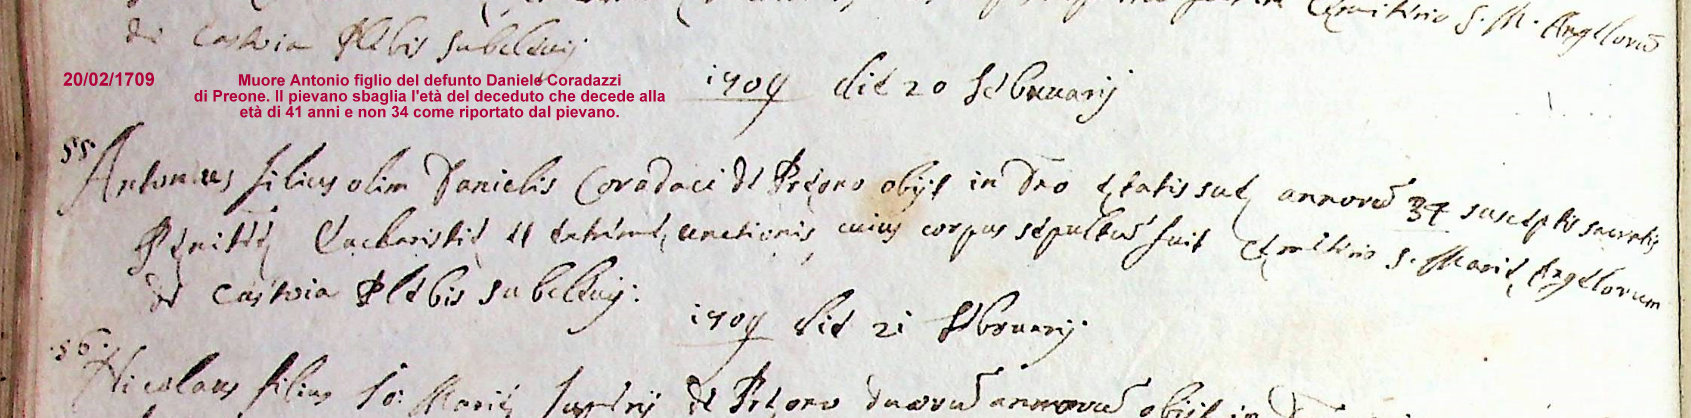 Cemitirio S. M. Angelorū
de Castoia Plebis Subclenij
20/02/1709
Muore Antonio figlio del defunto Daniele Coradazzi
di Preone. Il pievano sbaglia l'età del deceduto che decede alla
età di 41 anni e non 34 come riportato dal pievano.
1709 die 20 Februarij
55. Antonius filius olim Danielis Coradaci de Preono obijt in Dno etatis suę annorū 34 susceptis sacratis
Penitę Eucharistię et extremę unctionis, cuius corpus sepultū fuit Cęmitirio S. Marię Angelorum
de Castoia Plebis Subclenij:
1709 die 21 Februarij.
56. Nicolaus filius Jo: Marię de Preono duorū annorū obijt in